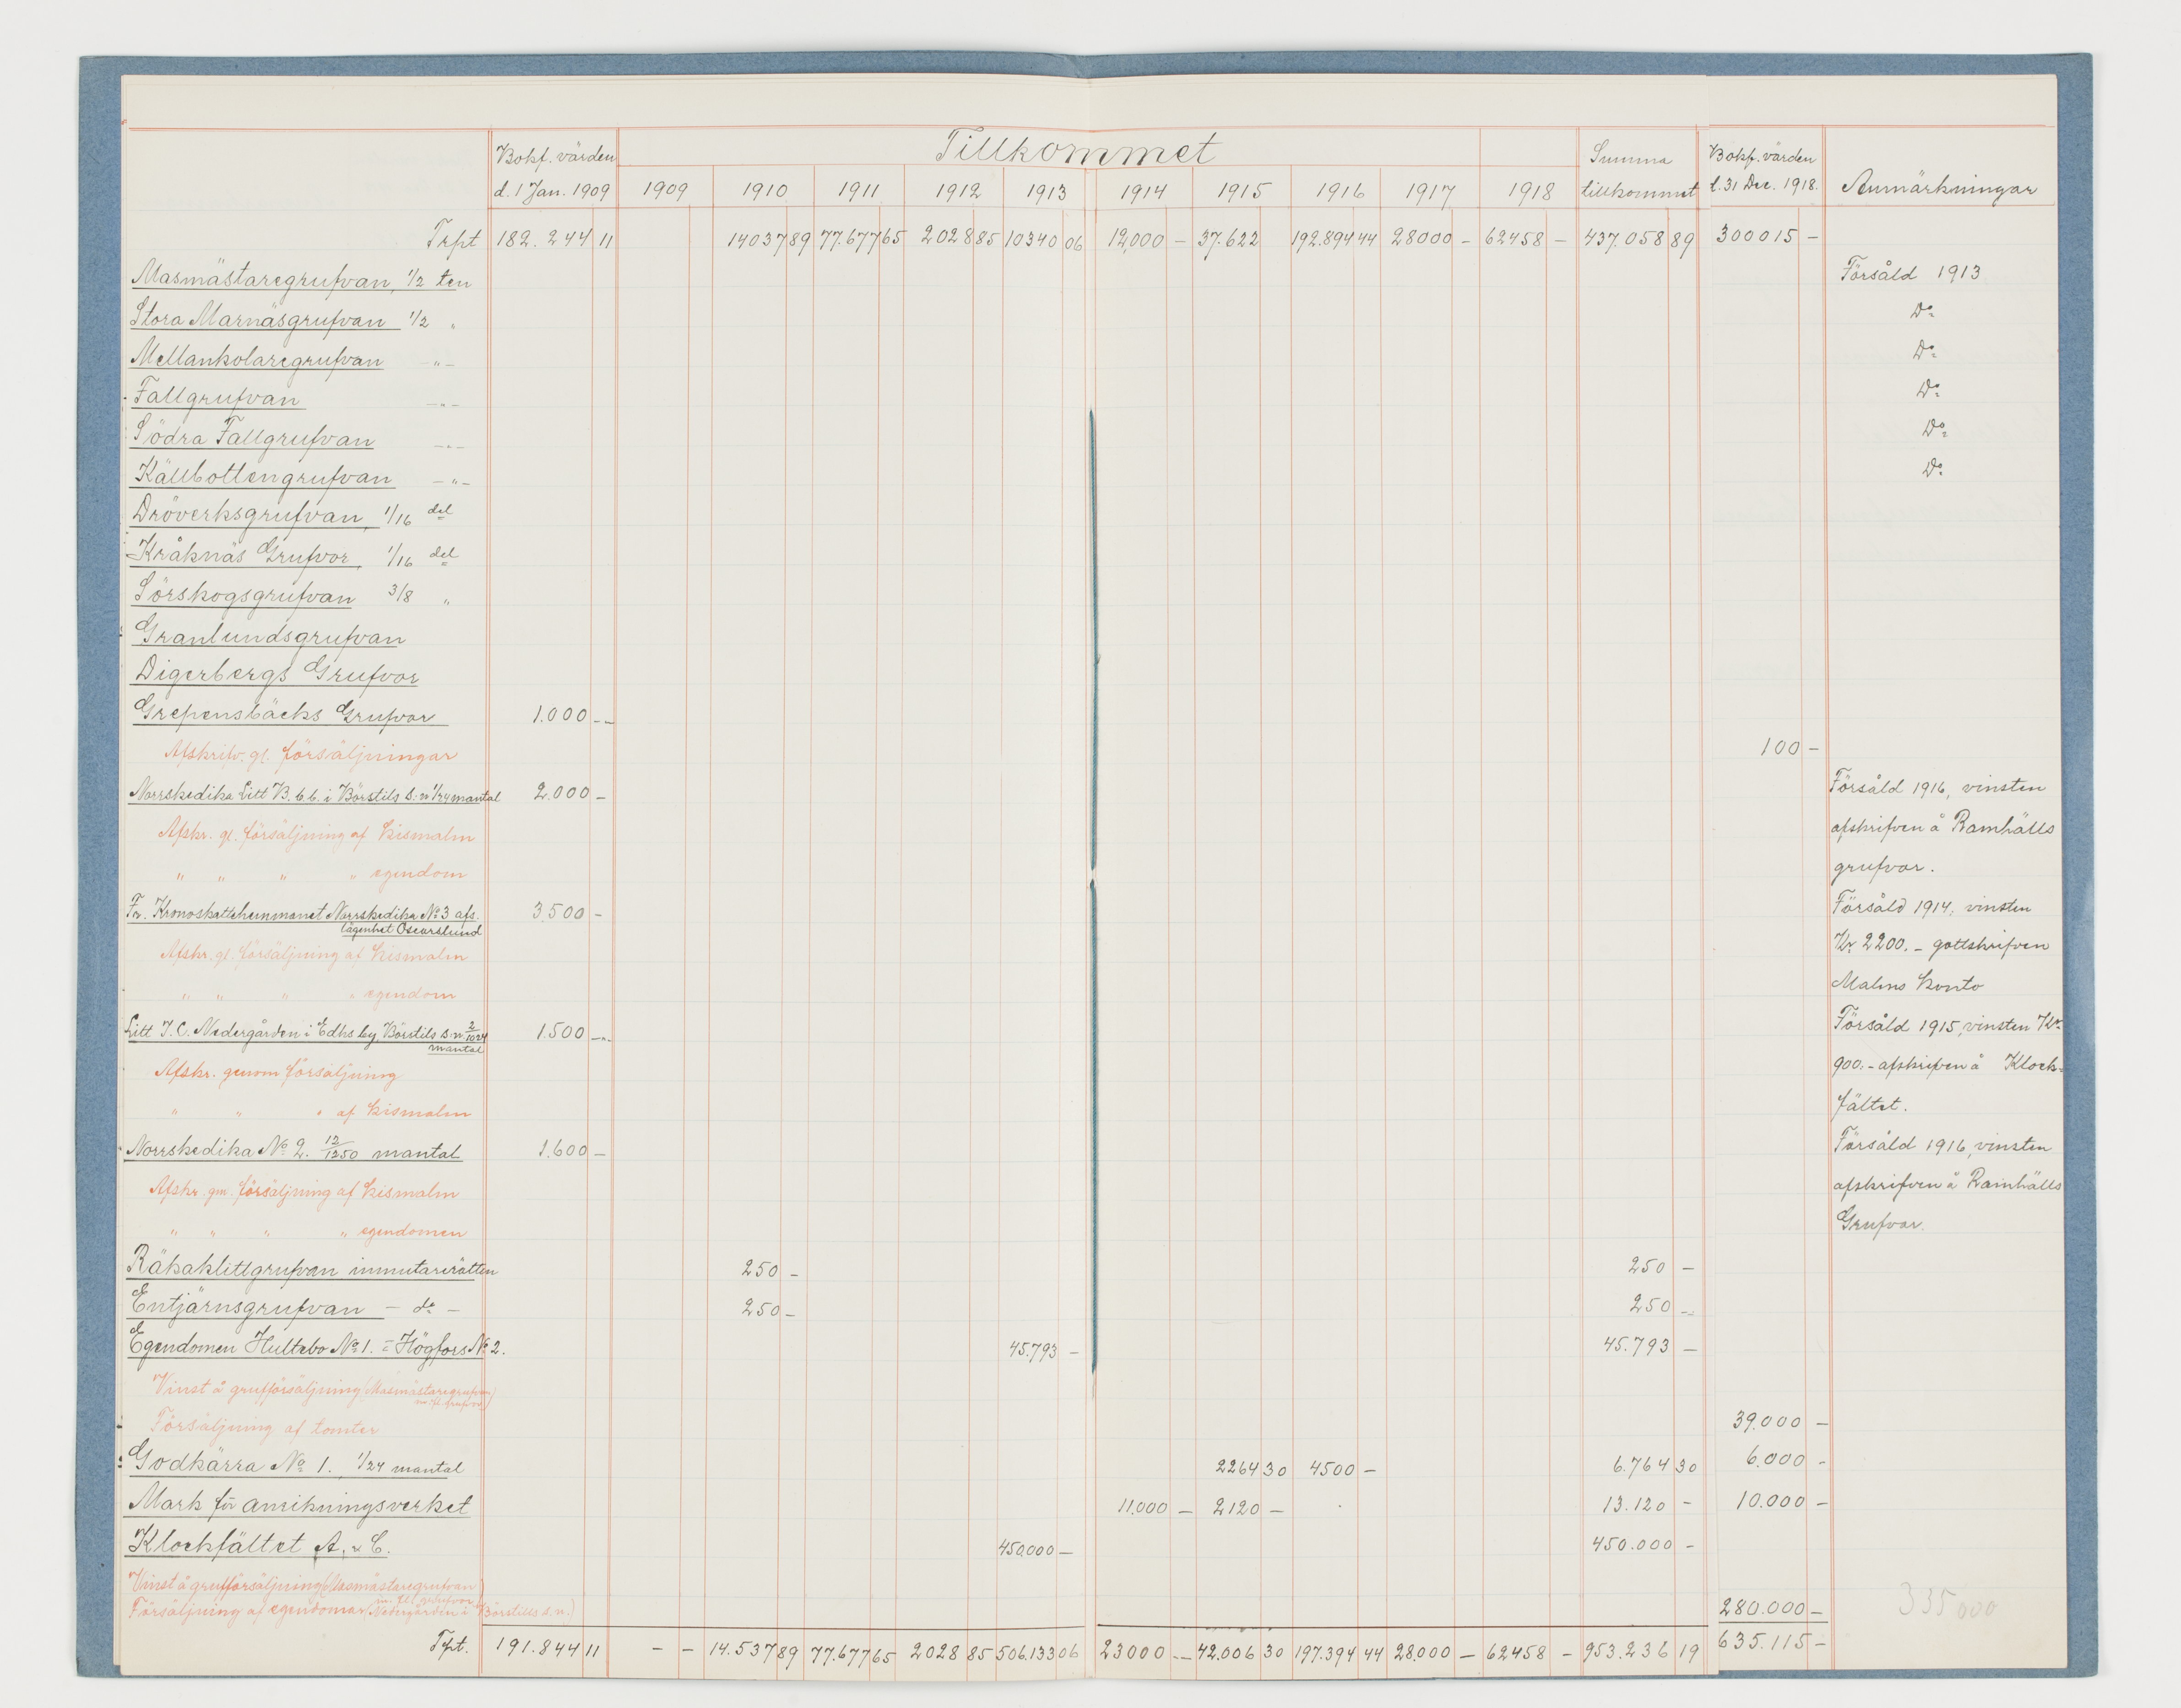 Tillkommet
Bokf. värden d. 1 Jan. 1909 | 1909 | 1910 | 1911 | 1912 | 1913 | 1914 | 1915 | 1916 | 1917 | 1918 | Summa tillkommet | Bokf. värden d. 31 Dec. 1918. | Anmärkningar
Trpt 182.244 11 14037 89 77.677 65 2028 85 10340 06 12,000 – 37.622 192.894 44 28000 – 62458 – 437.058 89 300015 –
Masmästaregrufvan, 1/2 ten Försåld 1913
Stora Marnäsgrufvan 1/2 " Do
Mellankolaregrufvan –"– Do
Fallgrufvan –"– Do
Södra Fallgrufvan –"– Do
Källbottengrufvan –"– Do
Dröverksgrufvan, 1/16 del
Kråknäs Grufvor, 1/16 del
Sörskogsgrufvan 3/8 "
Granlundsgrufvan
Digerbergs Grufvor
Grepensbäcks Grufvor 1.000 –
Afskrifv. gl. försäljningar 100 –
Norrskedika Litt B. b. b. i Börstils s:n 1/24 mantal 2.000 – Försåld 1916, vinsten
Afskr. gl. försäljning af kismalm afskrifven å Ramhälls
" " " " egendom grufvor.
Fr. Kronoskattehemmanet Norrskedika No 3 afs. 3.500 – Försåld 1914, vinsten
lägenhet Oscarslund
Afskr. gl. försäljning af kismalm Kr 2200. – gottskrifven
" " " " egendom Malms konto
Litt I. C. Nedergården i Edhs by, Börstils s:n 2/1024 1.500 – Försåld 1915, vinsten Kr
mantal
Afskr. genom försäljning 900.– afskrifven å Klock-
" " " af kismalm fältet.
Norrskedika No 2. 12/1250 mantal 1.600 – Försåld 1916, vinsten
Afskr. gm. försäljning af kismalm afskrifven å Ramhälls
" " " " egendomen Grufvor.
Räkaklittgrufvan inmutarerätten 250 – 250 –
Entjärnsgrufvan – do – 250 – 250 –
Egendomen Hultebo No 1. = Högfors No 2. 45.793 – 45.793 –
Vinst å grufförsäljning (Masmästaregrufvan
m. fl. grufvor)
Försäljning af tomter 39.000 –
Godkärra No 1. 1/24 mantal 2264 30 4500 – 6.764 30 6.000 –
Mark för anrikningsverket 11.000 – 2120 – 13.120 – 10.000 –
Klockfältet A. & C. 450.000 – 450.000 –
Vinst å grufförsäljning (Masmästaregrufvan
m. fl. grufvor)
Försäljning af egendomar (Nedergården i Börstils s.n.) 280.000 – 335 000
Trpt. 191.844 11 – – 14.537 89 77.677 65 2028 85 506.133 06 23000 – 42.006 30 197.394 44 28.000 – 62458 – 953.236 19 635.115 –